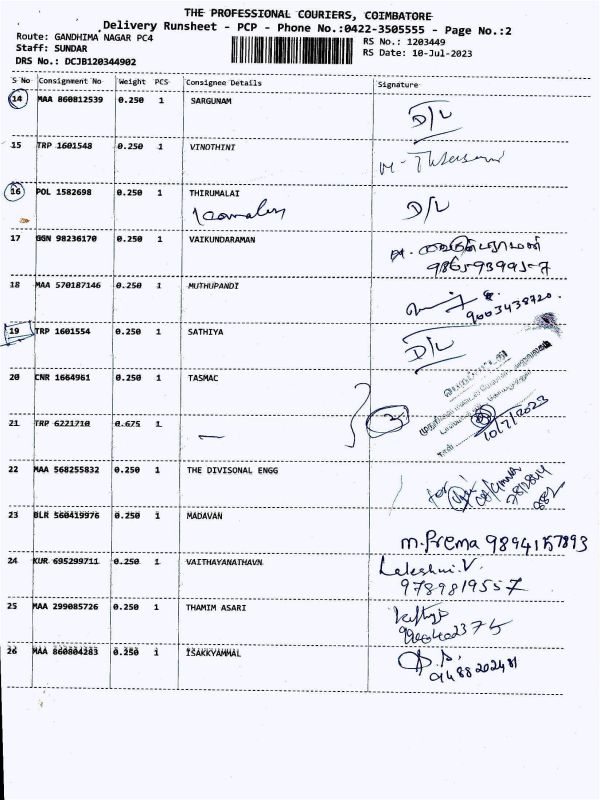 THE PROFESSIONAL COURIERS, COIMBATORE
Delivery Runsheet - PCP - Phone No.:0422-3505555 - Page No.:2
Route: GANDHIMA NAGAR PC4
RS No.: 1203449
Staff: SUNDAR
RS Date: 10-Jul-2023
DRS No.: DCJB120344902
S No Consignment No Weight PCS Consignee Details Signature
14 MAA 860812539 0.250 1 SARGUNAM D/L
15 TRP 1601548 0.250 1 VINOTHINI
16 POL 1582698 0.250 1 THIRUMALAI D/L
17 GGN 98236170 0.250 1 VAIKUNDARAMAN
9865939957
18 MAA 570187146 0.250 1 MUTHUPANDI
9003438720.
19 TRP 1601554 0.250 1 SATHIYA D/L
20 CNR 1664961 0.250 1 TASMAC
21 TRP 6221710 0.675 1 2
10/7/2023
22 MAA 568255832 0.250 1 THE DIVISONAL ENGG
23 BLR 560419976 0.250 1 MADAVAN
m.Prema 9894157893
24 KUR 695299711 0.250 1 VAITHAYANATHAVN Lakshmi.V.
9789819557
25 MAA 299085726 0.250 1 THAMIM ASARI
9900402375
26 MAA 860804283 0.250 1 ISAKKYAMMAL
9488202481